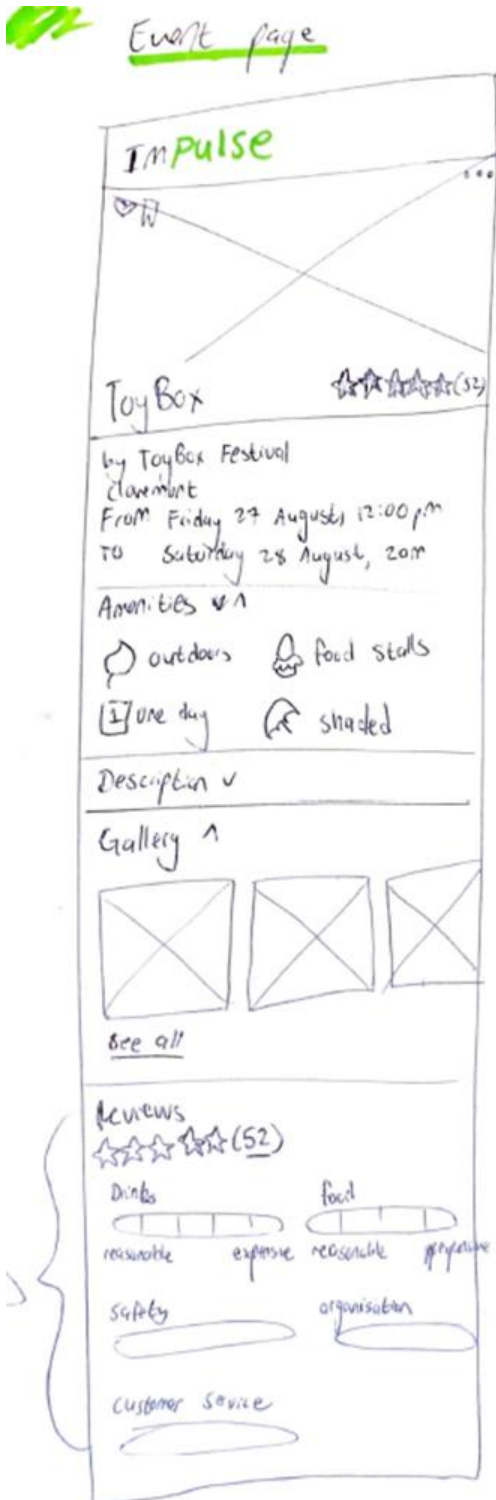 Event page
Impulse
ToyBox (52)
by ToyBox Festival
Claremont
From Friday 27 August, 12:00 pm
TO Saturday 28 August, 2am
Amenities
outdoors food stalls
1 one day shaded
Description
Gallery
See all
Reviews
(52)
Drinks food
reasonable expensive reasonable expensive
safety organisation
customer service